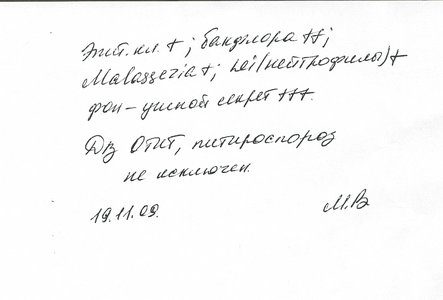 Эпит. кл. +; бакфлора ++;
Malassezia +; Lei (нейтрофилы) +
фон – ушной секрет +++.
Dз Отит, питироспороз
не исключен.
19.11.09. М.В